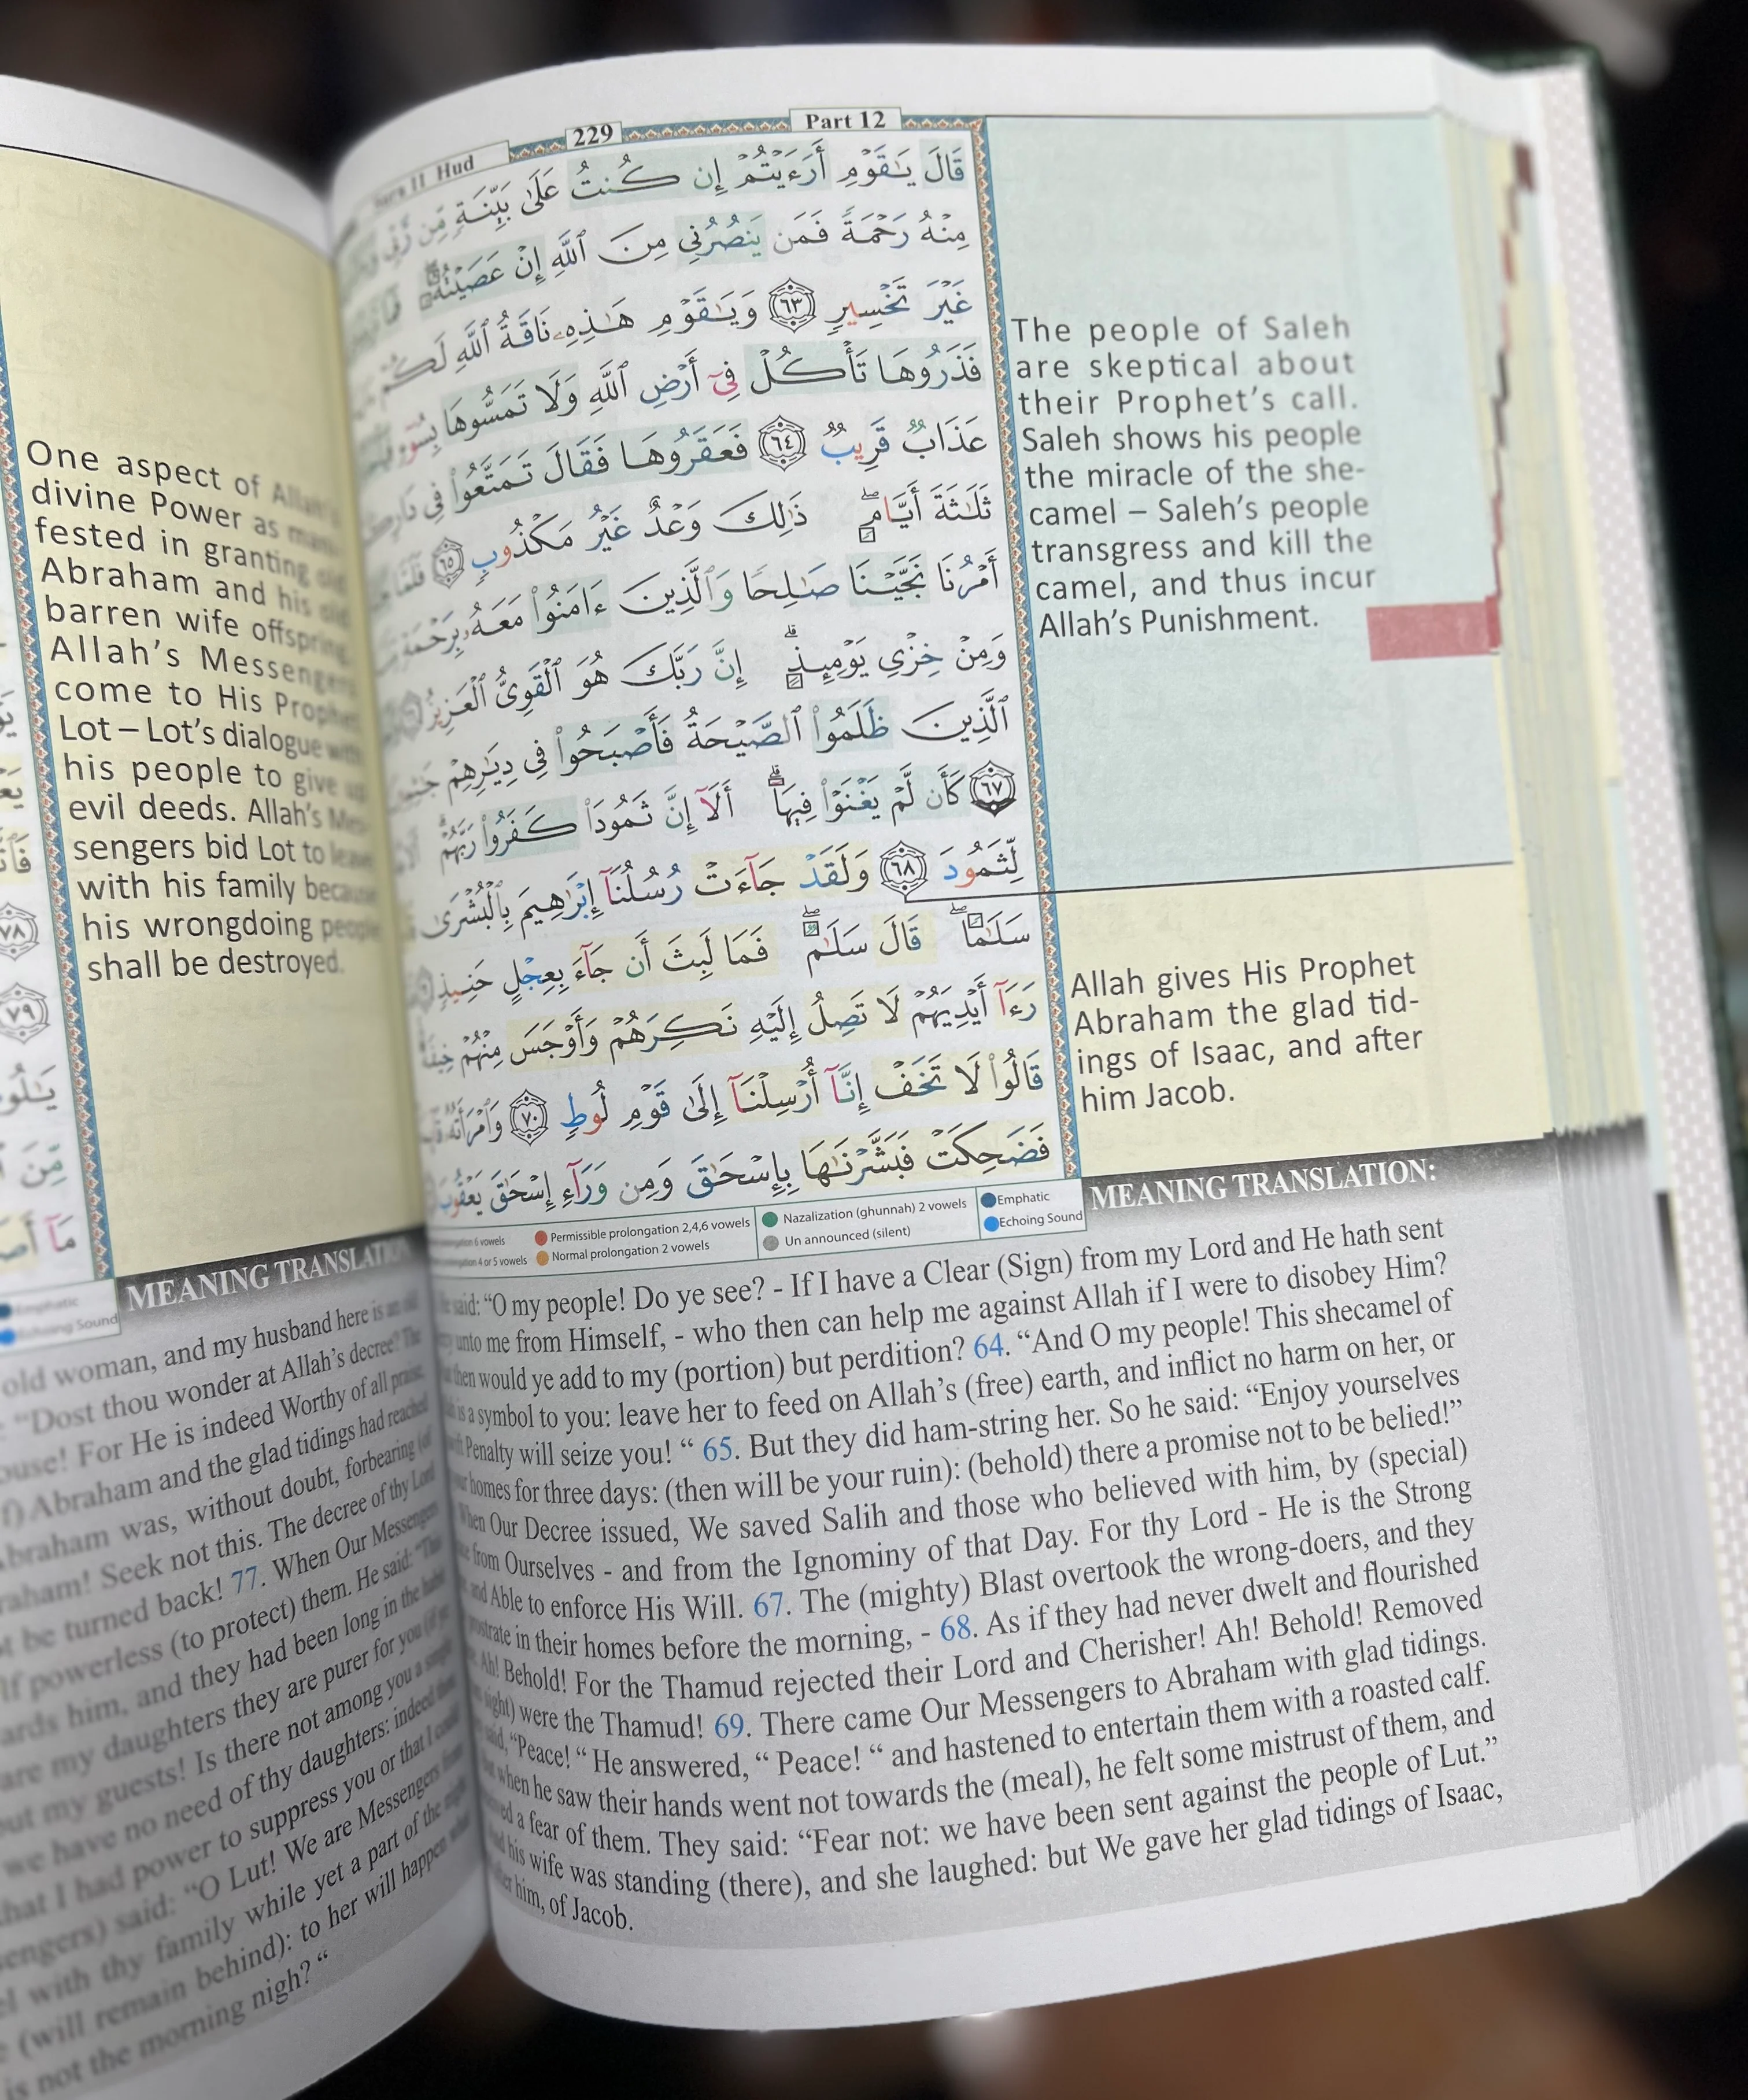 Part 12
229
Sura 11 Hud
قَالَ يَـٰقَوْمِ أَرَءَيْتُمْ إِن كُنتُ عَلَىٰ بَيِّنَةٍ مِّن رَّبِّى
مِنْهُ رَحْمَةً فَمَن يَنصُرُنِى مِنَ ٱللَّهِ إِنْ عَصَيْتُهُۥ ۖ
غَيْرَ تَخْسِيرٍ ٦٣ وَيَـٰقَوْمِ هَـٰذِهِۦ نَاقَةُ ٱللَّهِ لَكُمْ
فَذَرُوهَا تَأْكُلْ فِىٓ أَرْضِ ٱللَّهِ وَلَا تَمَسُّوهَا بِسُوٓءٍ
عَذَابٌ قَرِيبٌ ٦٤ فَعَقَرُوهَا فَقَالَ تَمَتَّعُوا۟ فِى دَارِكُمْ
ثَلَـٰثَةَ أَيَّامٍ ۖ ذَٰلِكَ وَعْدٌ غَيْرُ مَكْذُوبٍ ٦٥ فَلَمَّا
أَمْرُنَا نَجَّيْنَا صَـٰلِحًا وَٱلَّذِينَ ءَامَنُوا۟ مَعَهُۥ بِرَحْمَةٍ
وَمِنْ خِزْىِ يَوْمِئِذٍ ۗ إِنَّ رَبَّكَ هُوَ ٱلْقَوِىُّ ٱلْعَزِيزُ
ٱلَّذِينَ ظَلَمُوا۟ ٱلصَّيْحَةُ فَأَصْبَحُوا۟ فِى دِيَـٰرِهِمْ
٦٧ كَأَن لَّمْ يَغْنَوْا۟ فِيهَآ ۗ أَلَآ إِنَّ ثَمُودَا۟ كَفَرُوا۟ رَبَّهُمْ ۗ
لِّثَمُودَ ٦٨ وَلَقَدْ جَآءَتْ رُسُلُنَآ إِبْرَٰهِيمَ بِٱلْبُشْرَىٰ
سَلَـٰمًا ۖ قَالَ سَلَـٰمٌ ۖ فَمَا لَبِثَ أَن جَآءَ بِعِجْلٍ حَنِيذٍ
رَءَآ أَيْدِيَهُمْ لَا تَصِلُ إِلَيْهِ نَكِرَهُمْ وَأَوْجَسَ مِنْهُمْ خِيفَةً
قَالُوا۟ لَا تَخَفْ إِنَّآ أُرْسِلْنَآ إِلَىٰ قَوْمِ لُوطٍ ٧٠ وَٱمْرَأَتُهُۥ
فَضَحِكَتْ فَبَشَّرْنَـٰهَا بِإِسْحَـٰقَ وَمِن وَرَآءِ إِسْحَـٰقَ يَعْقُوبَ
The people of Saleh
are skeptical about
their Prophet's call.
Saleh shows his people
the miracle of the she-
camel – Saleh's people
transgress and kill the
camel, and thus incur
Allah's Punishment.
Allah gives His Prophet
Abraham the glad tid-
ings of Isaac, and after
him Jacob.
6 vowels
4 or 5 vowels
Permissible prolongation 2,4,6 vowels
Normal prolongation 2 vowels
Nazalization (ghunnah) 2 vowels
Un announced (silent)
Emphatic
Echoing Sound
MEANING TRANSLATION:
said: “O my people! Do ye see? - If I have a Clear (Sign) from my Lord and He hath sent
unto me from Himself, - who then can help me against Allah if I were to disobey Him?
then would ye add to my (portion) but perdition? 64. “And O my people! This shecamel of
is a symbol to you: leave her to feed on Allah's (free) earth, and inflict no harm on her, or
Penalty will seize you! “ 65. But they did ham-string her. So he said: “Enjoy yourselves
homes for three days: (then will be your ruin): (behold) there a promise not to be belied!”
When Our Decree issued, We saved Salih and those who believed with him, by (special)
from Ourselves - and from the Ignominy of that Day. For thy Lord - He is the Strong
and Able to enforce His Will. 67. The (mighty) Blast overtook the wrong-doers, and they
in their homes before the morning, - 68. As if they had never dwelt and flourished
Ah! Behold! For the Thamud rejected their Lord and Cherisher! Ah! Behold! Removed
were the Thamud! 69. There came Our Messengers to Abraham with glad tidings.
said, “Peace! “ He answered, “ Peace! “ and hastened to entertain them with a roasted calf.
when he saw their hands went not towards the (meal), he felt some mistrust of them, and
a fear of them. They said: “Fear not: we have been sent against the people of Lut.”
his wife was standing (there), and she laughed: but We gave her glad tidings of Isaac,
him, of Jacob.
One aspect of Allah's
divine Power as mani-
fested in granting old
Abraham and his old
barren wife offspring.
Allah's Messengers
come to His Prophet
Lot – Lot's dialogue with
his people to give up
evil deeds. Allah's Mes-
sengers bid Lot to leave
with his family because
his wrongdoing people
shall be destroyed.
٧٨
٧٩
Emphatic
Echoing Sound
MEANING TRANSLATION
old woman, and my husband here is an old
“Dost thou wonder at Allah's decree? The
For He is indeed Worthy of all praise,
Abraham and the glad tidings had reached
was, without doubt, forbearing (of
Seek not this. The decree of thy Lord
be turned back! 77. When Our Messengers
powerless (to protect) them. He said: “This
him, and they had been long in the habit
are my daughters they are purer for you (if ye
my guests! Is there not among you a single
we have no need of thy daughters: indeed
that I had power to suppress you or that I could
said: “O Lut! We are Messengers from
with thy family while yet a part of the night
(will remain behind): to her will happen what
is not the morning nigh? “